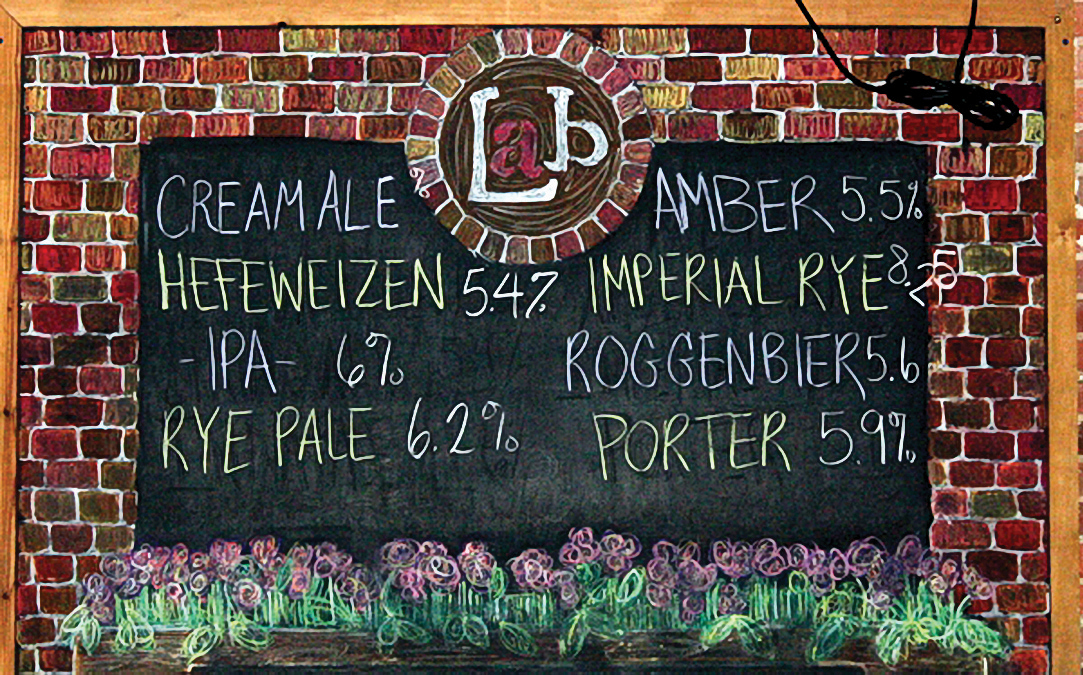 Lab
CREAM ALE %
HEFEWEIZEN 5.4%
-IPA- 6%
RYE PALE 6.2%
AMBER 5.5%
IMPERIAL RYE 8.25
ROGGENBIER 5.6
PORTER 5.9%